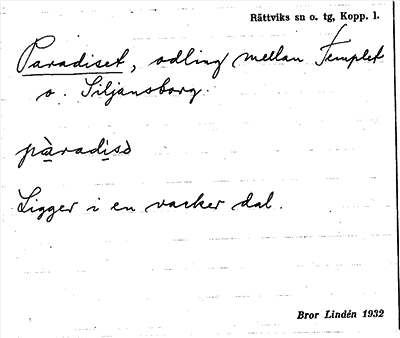 Rättviks sn o. tg, Kopp. l.
Paradiset, odling mellan Templet
o. Siljansborg.
pàradìsò
Ligger i en vacker dal.
Bror Lindén 1932